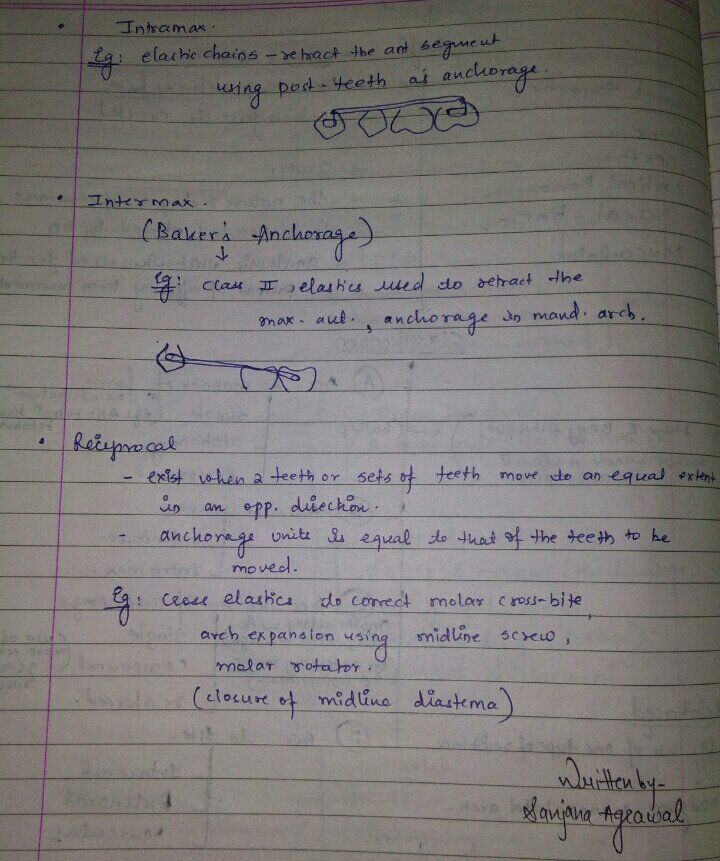 • Intramax.
Eg: elastic chains - retract the ant segment
using post. teeth as anchorage.
• Intermax.
(Baker's Anchorage)
↓
Eg: class II elastics used to retract the
max. ant., anchorage in mand. arch.
• Reciprocal
- exist when 2 teeth or sets of teeth move to an equal extent
in an opp. direction.
- anchorage units is equal to that of the teeth to be
moved.
Eg: cross elastics to correct molar cross-bite,
arch expansion using midline screw,
molar rotator.
(closure of midline diastema)
Written by-
Sanjana Agrawal